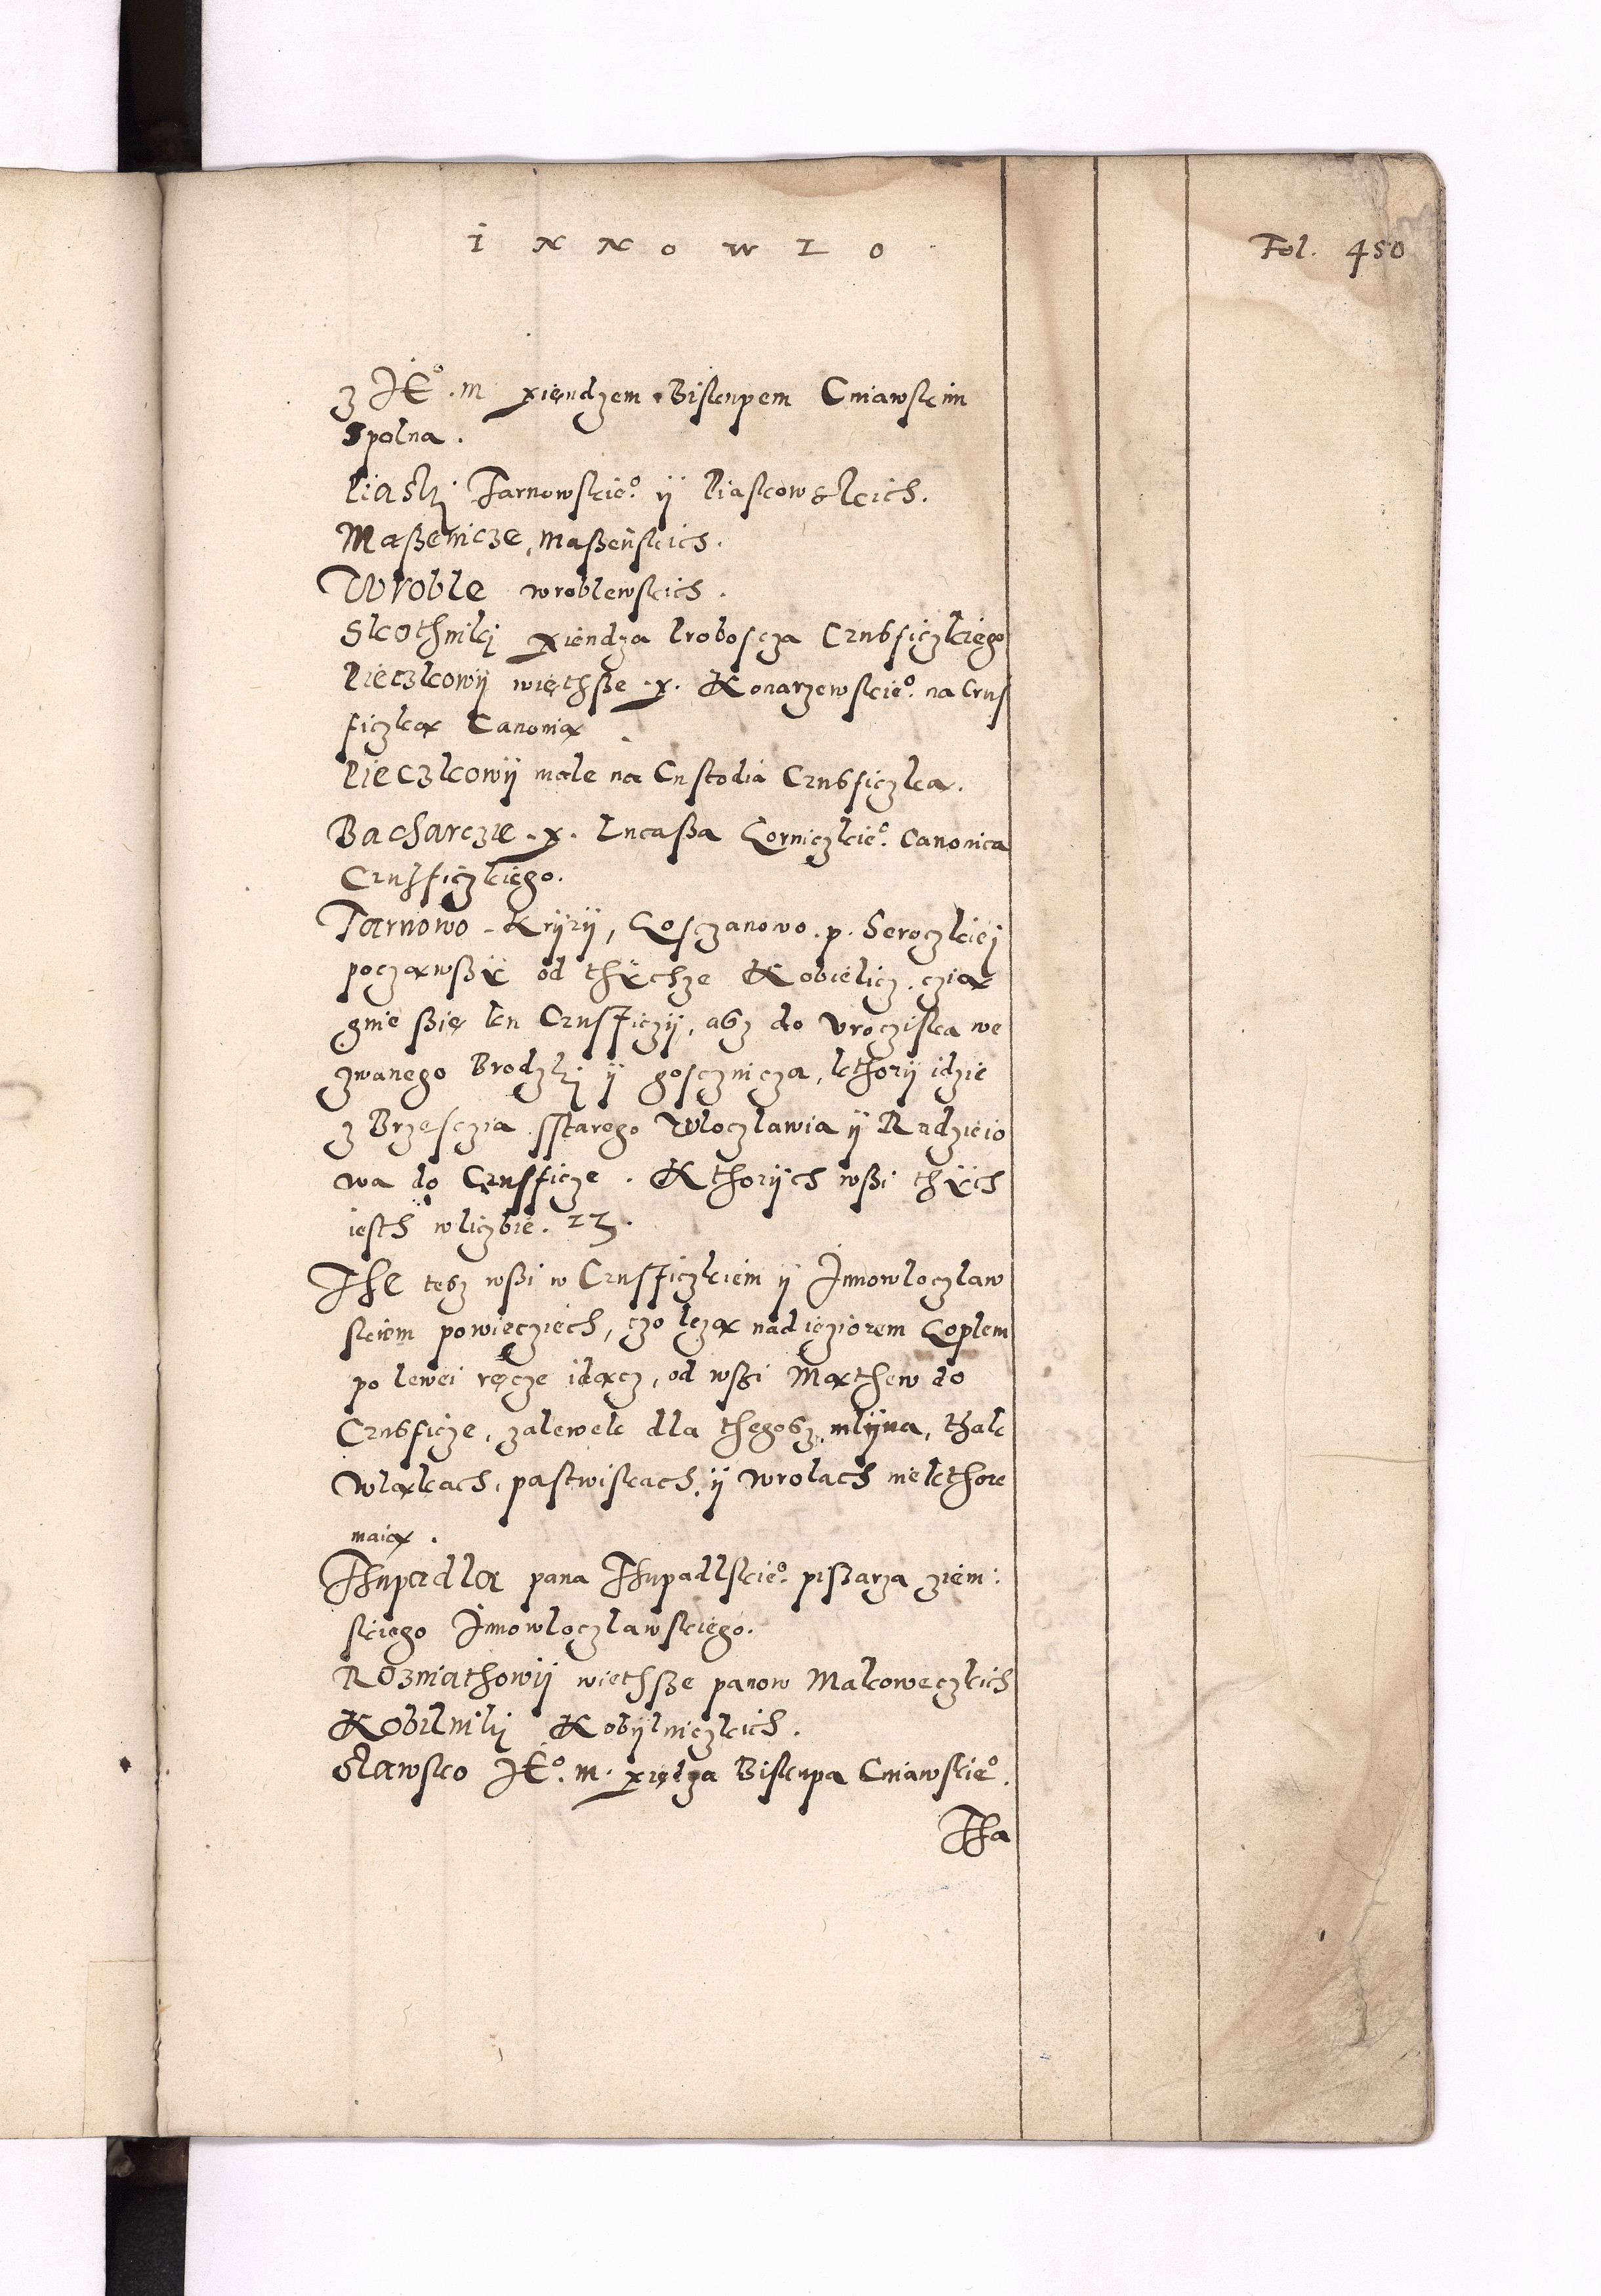 INNOWLO
Fol. 450
z JE° m xiendzem Biskupem Cuiawskim
Spolna.
Piaski Tarnowskie° ÿ Piaskowskich.
Maßenicze, Maßeńskich.
Wroble wroblewskich.
Skothniki xiendza Proboscza Crusficzkiego
Pieczkowÿ wiethße x. Konarzewskie° na Crus
ficzką Canonią
Pieczkowÿ małe na Custodia Crusficzka.
Bacharczie x. Lucaßa Gorniczkie° Canonica
Crusficzkiego.
Tarnowo Krÿzÿ, Gosczanowo p. Seroczkiej
począwßÿ od thÿchze Kobielicz, czią
gnie ßię ku Crusficzÿ, asz do vrocziska we
zwanego Brodzki ÿ gosczincza, kthorÿ idzie
z Brzesczia starego Wloczlawia ÿ Radzieio
wa do Crusficze. Kthorÿch wßi thÿch
iesth w liczbie. 23.
The tesz wßi w Crusficzkiem ÿ Innowloczlaw
skiem powiecziech, czo leżą nad ieziorem Goplem
po lewei ręcze idącz, od wßi Mąthew do
Crusficze, zalewek dla thegosz mlÿna, thak
w ląkach, pastwiskach ÿ w rolach niekthore
maią.
Thupadla pana Thupadlskie° pißarza ziem:
skiego Innowloczlawskiego.
Rozniathowÿ wiethsze panow Malkoweczkich
Kobilniki Kobÿlniczkich.
Slawsko JE°. m. xiędza Biskupa Cuiawskie°.
Tha